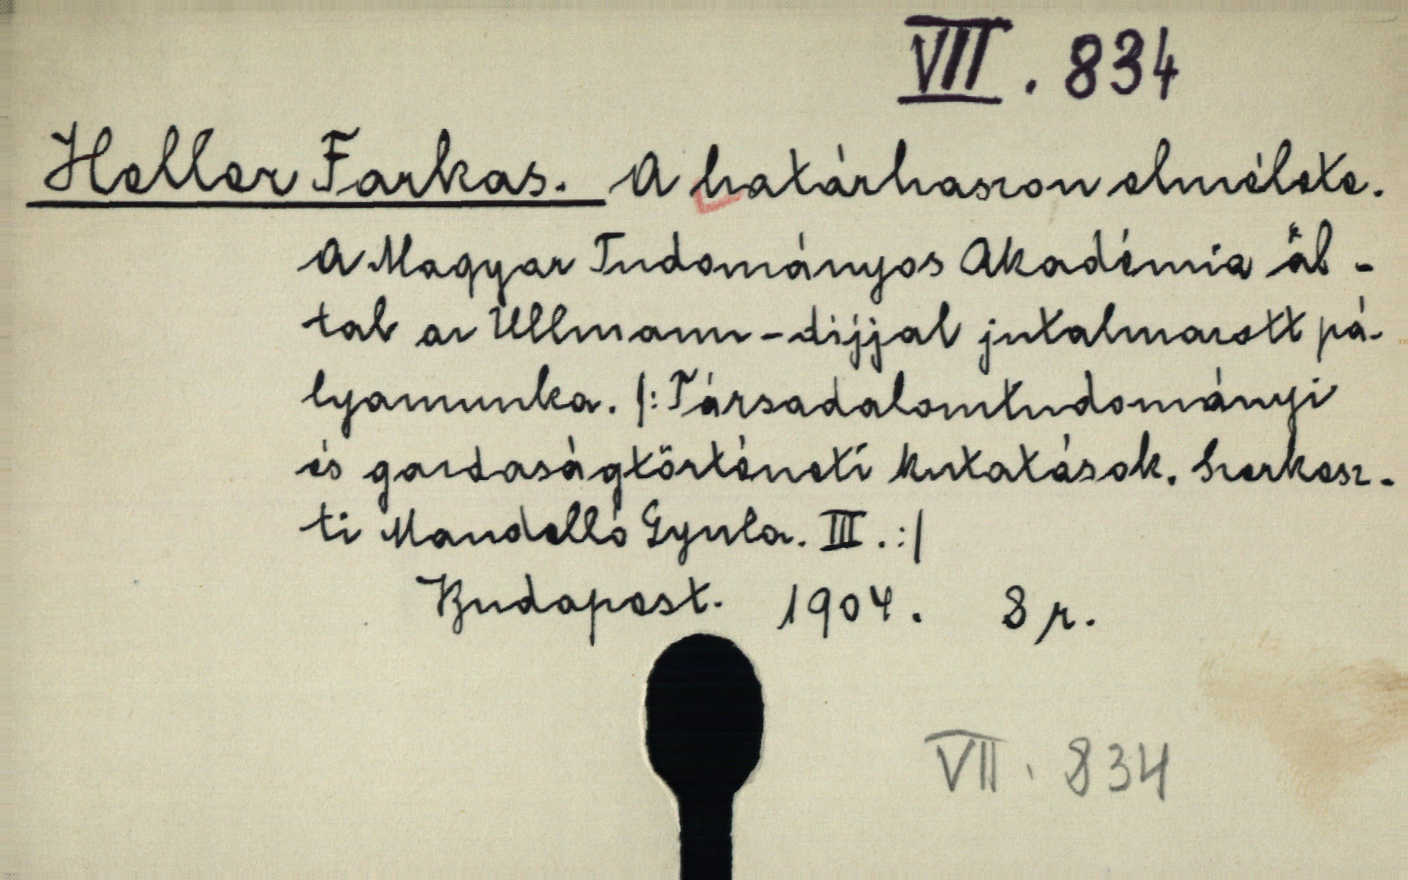 VII. 834
Heller Farkas. A határhaszon elmélete.
A Magyar Tudományos Akadémia ál-
tal az Ullmann-díjjal jutalmazott pá-
lyamunka. /: Társadalomtudományi
és gazdaságtörténeti kutatások. Szerkesz-
ti Mandelló Gyula. III. :/
Budapest. 1904. 8 r.
VII. 834